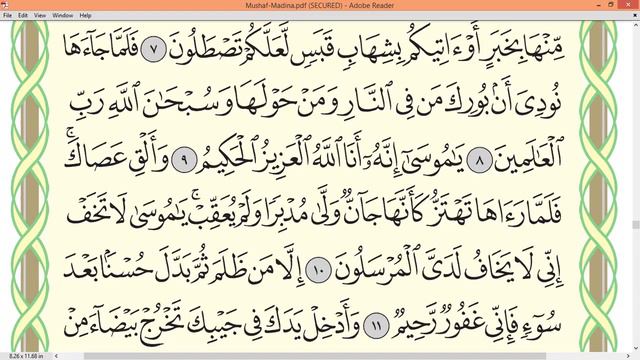 Mushaf-Madina.pdf (SECURED) - Adobe Reader
File Edit View Window Help
مِّنْهَا بِخَبَرٍ أَوْ ءَاتِيكُم بِشِهَابٍ قَبَسٍ لَّعَلَّكُمْ تَصْطَلُونَ ٧ فَلَمَّا جَآءَهَا
نُودِىَ أَنۢ بُورِكَ مَن فِى ٱلنَّارِ وَمَنْ حَوْلَهَا وَسُبْحَٰنَ ٱللَّهِ رَبِّ
ٱلْعَٰلَمِينَ ٨ يَٰمُوسَىٰٓ إِنَّهُۥٓ أَنَا ٱللَّهُ ٱلْعَزِيزُ ٱلْحَكِيمُ ٩ وَأَلْقِ عَصَاكَ ۚ
فَلَمَّا رَءَاهَا تَهْتَزُّ كَأَنَّهَا جَآنٌّ وَلَّىٰ مُدْبِرًا وَلَمْ يُعَقِّبْ ۚ يَٰمُوسَىٰ لَا تَخَفْ
إِنِّى لَا يَخَافُ لَدَىَّ ٱلْمُرْسَلُونَ ١٠ إِلَّا مَن ظَلَمَ ثُمَّ بَدَّلَ حُسْنًۢا بَعْدَ
سُوٓءٍ فَإِنِّى غَفُورٌ رَّحِيمٌ ١١ وَأَدْخِلْ يَدَكَ فِى جَيْبِكَ تَخْرُجْ بَيْضَآءَ مِنْ
8.26 x 11.68 in